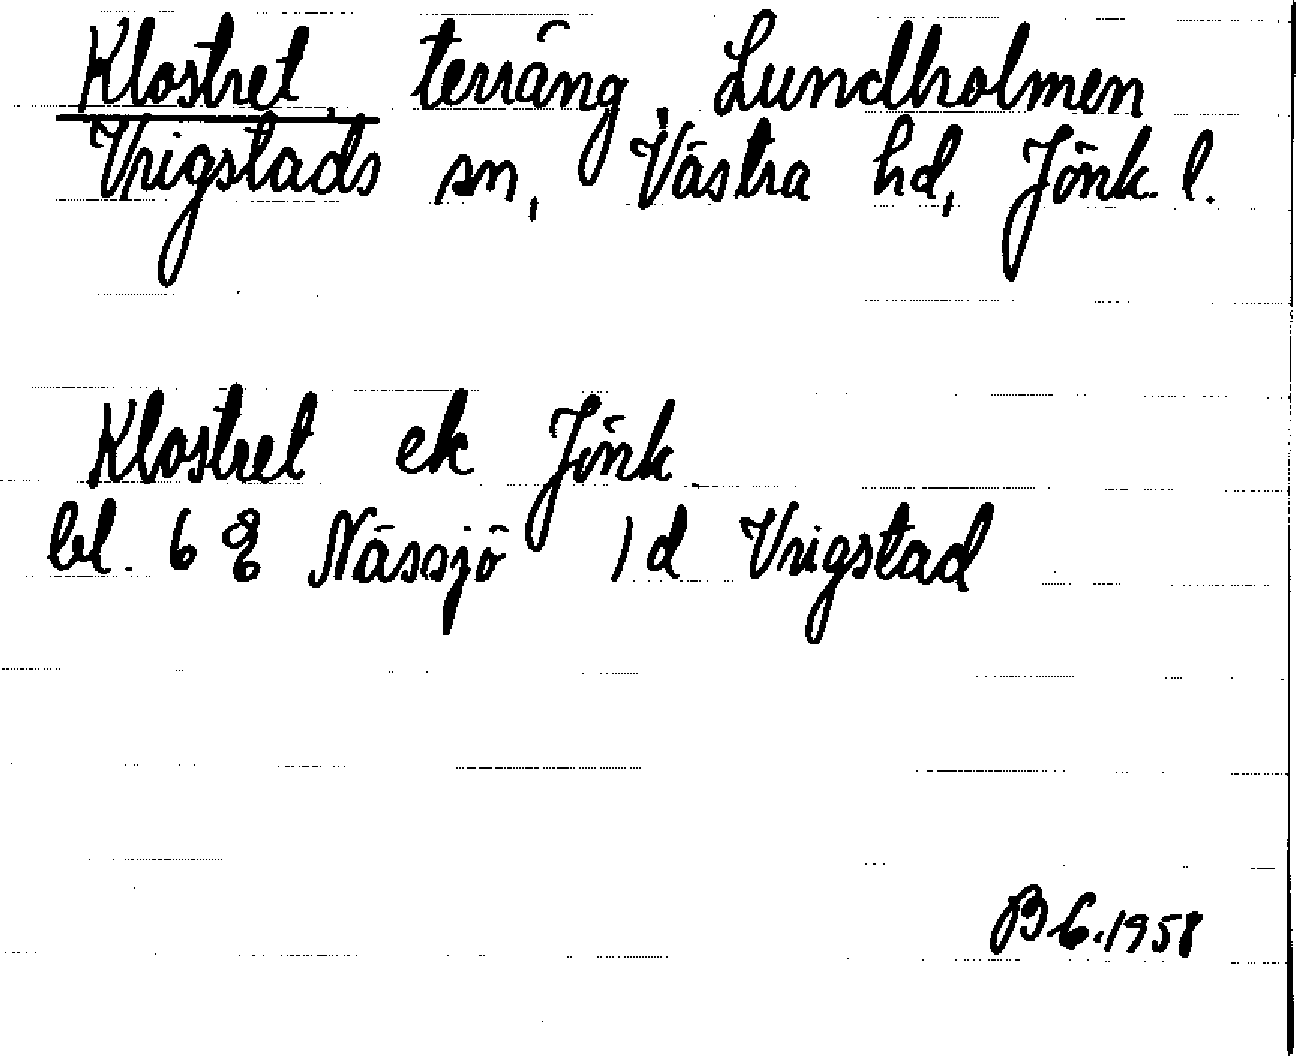 Klostret, terräng, Lundholmen
Vrigstads sn, Västra hd, Jönk. l.
Klostret ek Jönk.
bl. 6 E Nässjö 1 d Vrigstad
BG.1958